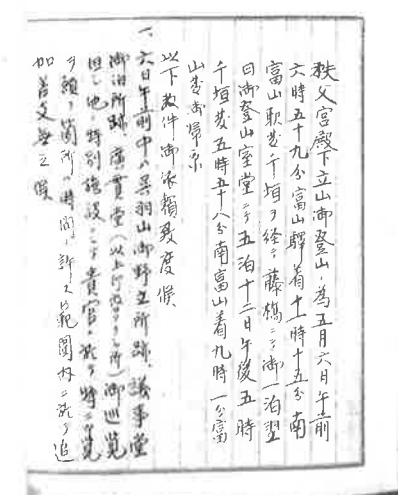 秩父宮殿下立山御登山ノ為五月六日午前
六時五十九分富山駅着十一時十五分南
富山駅発千垣ヲ経テ藤橋ニテ御一泊翌
日御登山室堂ニテ五泊十二日午後五時
千垣発五時五十八分南富山着九時一分富
山発御帰京
以下数件御依頼致度候
一、六日午前中ハ呉羽山御野立所跡、議事堂
御泊所跡、広貫堂(以上 )御巡覧
但シ他ノ特別施設 貴官ニ於テ特ニ 覧
ヲ願フ箇所ハ時間ノ許ス範囲内ニ於テ追
加差支無之候